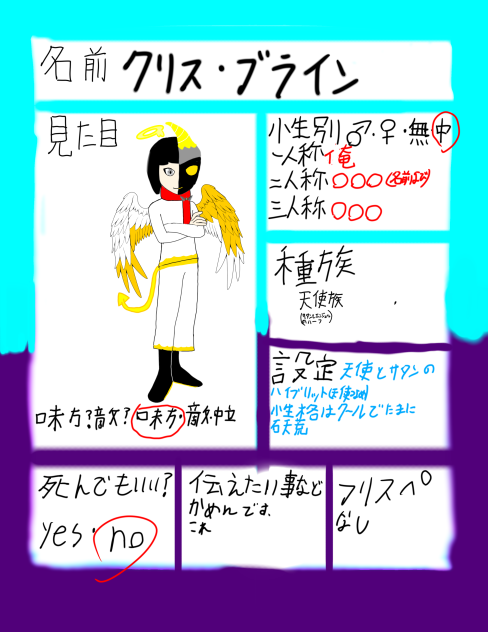 名前 クリス・ブライン
見た目
味方?敵?味方・敵・中立
小生別 ♂・♀・無 中
一人称 俺
二人称 〇〇〇(名前よび)
三人称 〇〇〇
種族
天使族
ハーフ
設定 天使とサタンの
ハイブリット
小生格はクールでたまに
石天荒
死んでもいい?
yes・no
伝えたい事など
かめんです、
これ
フリスペ
なし